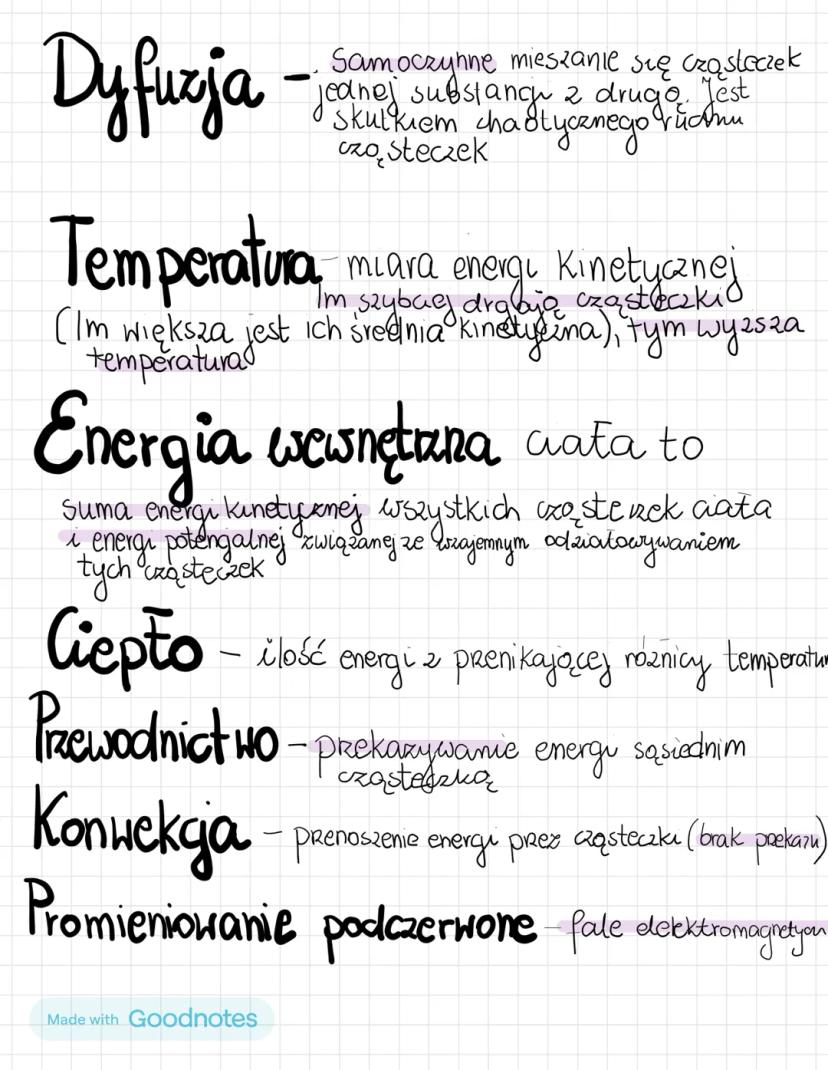 Dyfuzja - Samoczynne mieszanie się cząsteczek
jednej substancji z drugą. Jest
skutkiem chaotycznego ruchu
cząsteczek
Temperatura - miara energi kinetycznej
Im szybciej drgają cząsteczki
(Im większa jest ich średnia kinetyczna), tym wyższa
temperatura
Energia wewnętrzna ciała to
suma energi kinetycznej wszystkich cząsteczek ciała
i energi potencjalnej związanej ze wzajemnym odziaływaniem
tych cząsteczek
Ciepło - ilość energi z przenikającej różnicy temperatur
Przewodnictwo - przekazywanie energi sąsiednim
cząsteczką
Konwekcja - przenoszenie energi przez cząsteczki (brak przekazu)
Promieniowanie podczerwone - fale elektromagnetyczn
Made with Goodnotes